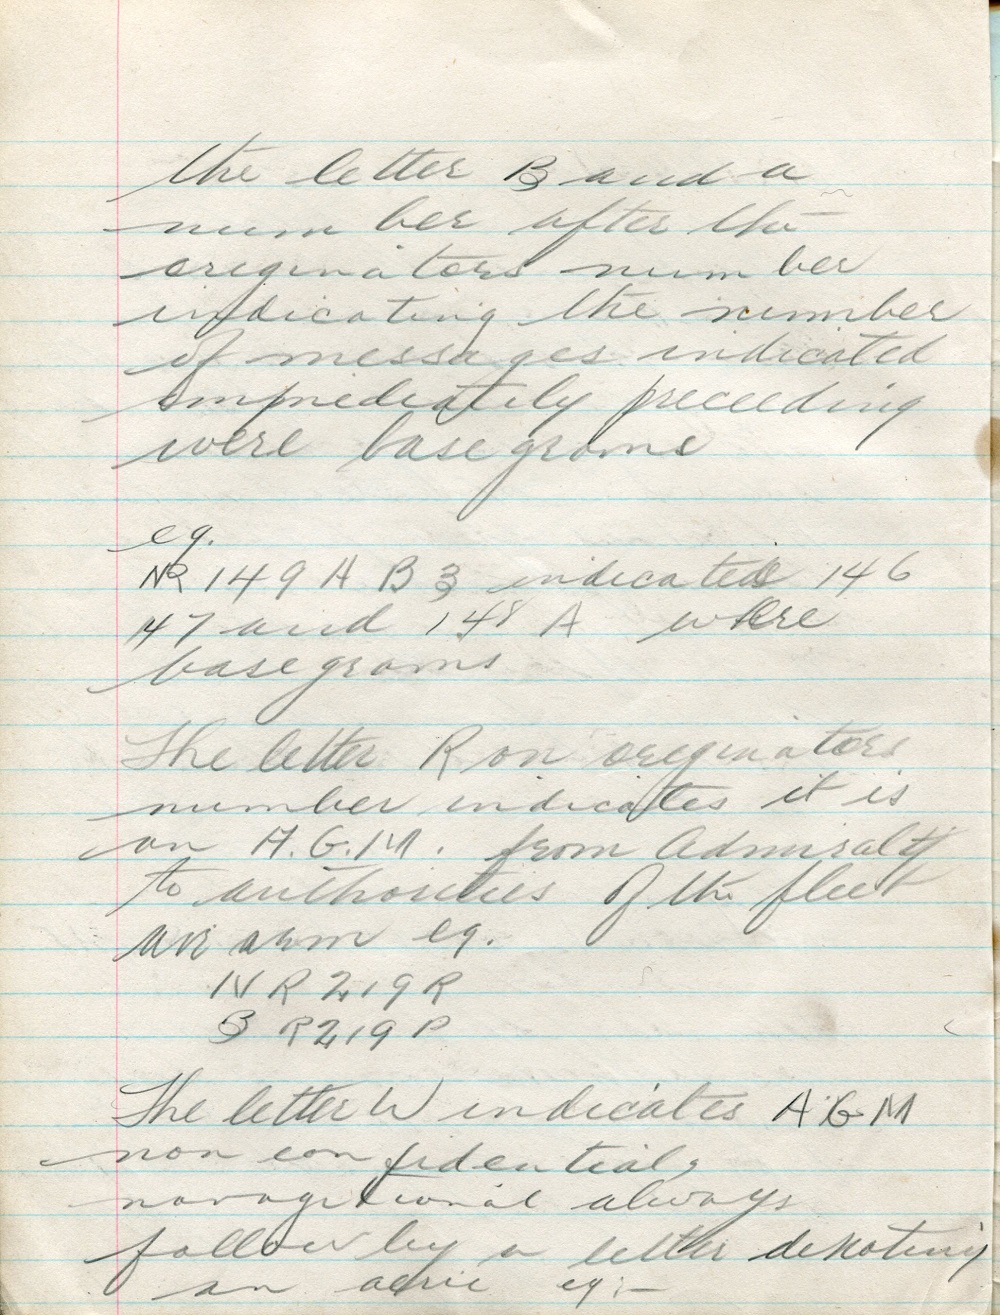 the letter B and a
number after the
originators number
indicating the number
of messages indicated
immediately preceeding
were basegrams
eg.
NR 149 A B3 indicated 146
147 and 148 A were
basegrams
The letter R on originators
number indicates it is
an A.G.M. from Admiralty
to authorities of the fleet
air arm eg.
NR 219R
B R219P
The letter W indicates AGM
non confidential,
navagitional always
follow by a letter denoting
an aeric eg:-